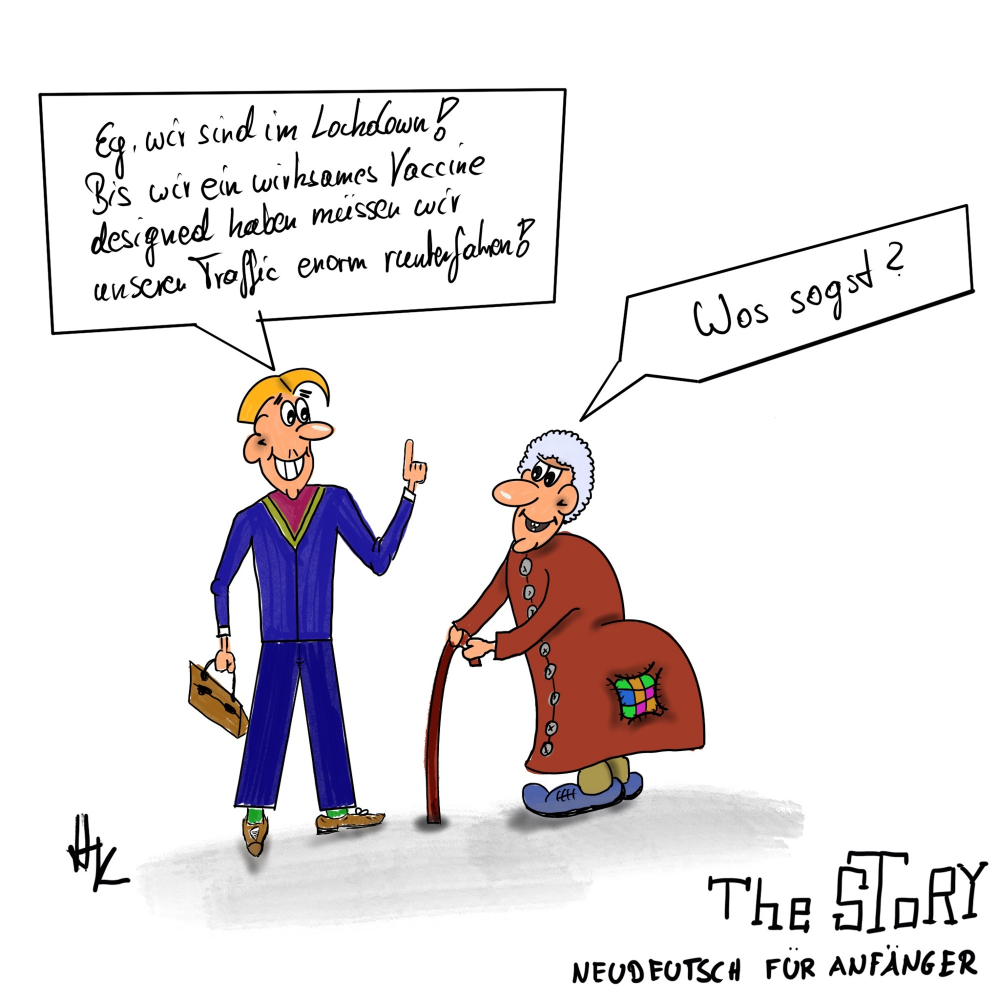 Ey, wir sind im Lockdown!
Bis wir ein wirksames Vaccine
designed haben müssen wir
unseren Traffic enorm runterfahren!
Wos sogst?
HK
The STORY
NEUDEUTSCH FÜR ANFÄNGER